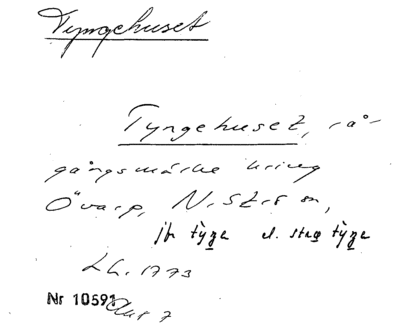 Tyngehuset
Tyngehuset, rå-
gångsmärke kring
Övarp, N. Strö sn,
jfr tỳnge el. stng tỳnge
Lh. 1773
Nr 10591 Akt 7